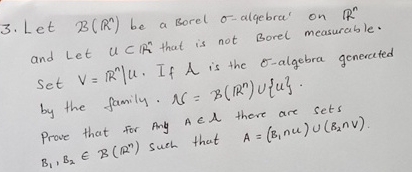 3. Let B(ℝⁿ) be a Borel σ-algebra' on ℝⁿ
and Let U ⊂ ℝⁿ that is not Borel measurable.
Set V = ℝⁿ\U. If A is the σ-algebra generated
by the family. N = B(ℝⁿ)∪{U}.
Prove that For Any A ∈ A there are sets
B₁, B₂ ∈ B(ℝⁿ) such that A = (B₁∩U) ∪ (B₂∩V).